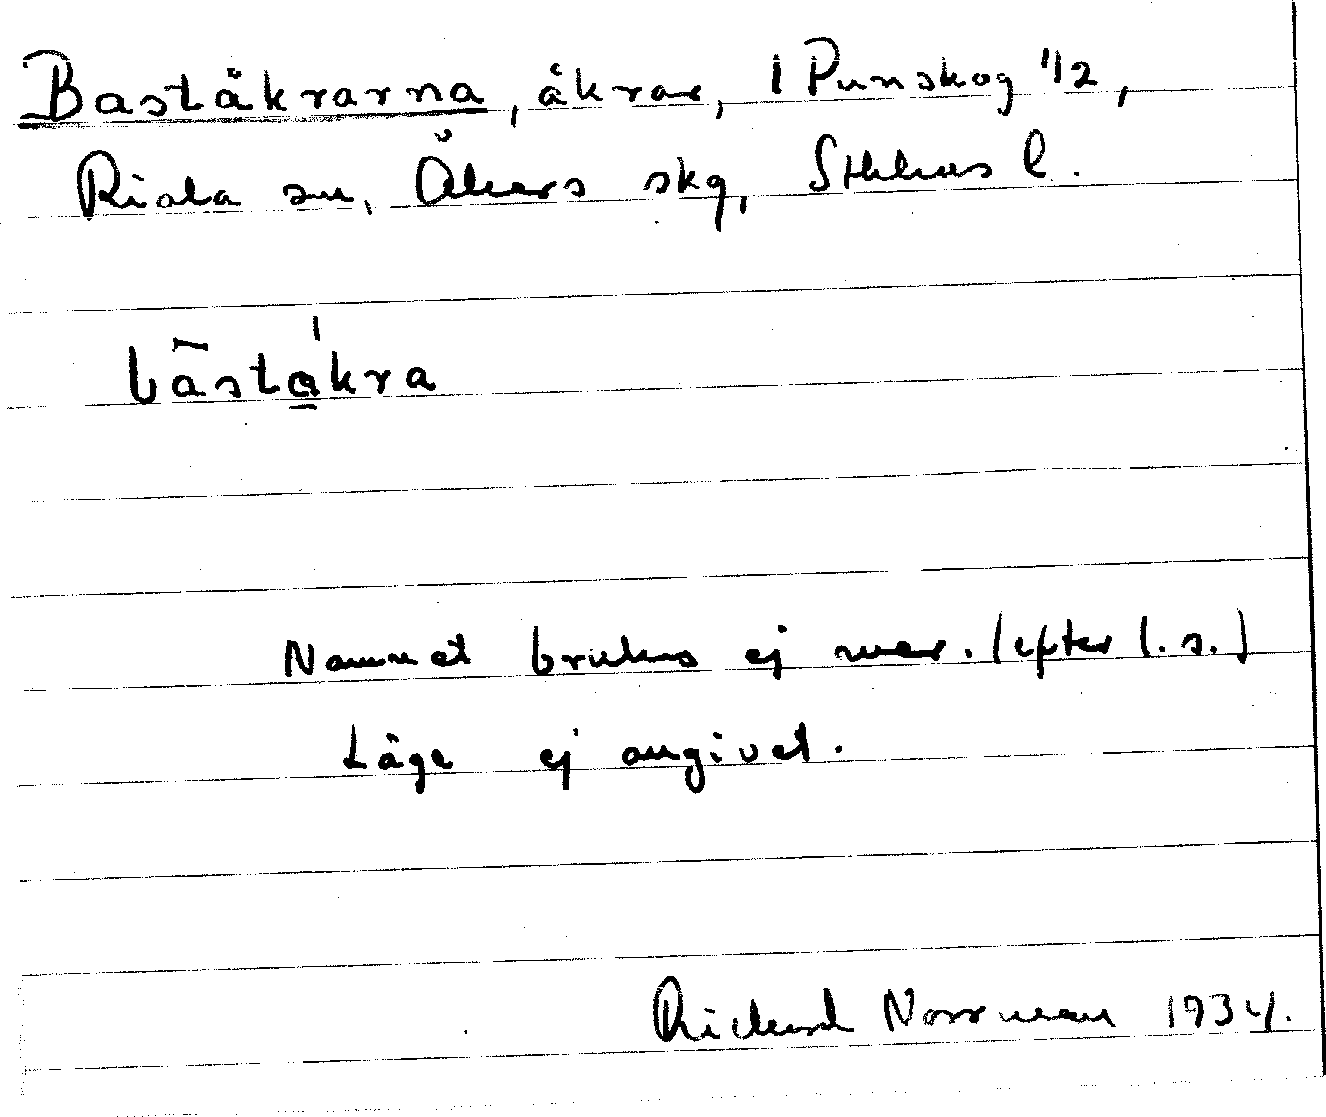 Baståkrarna, åkrar, 1 Punskog 1/2,
Riala sn, Åkers skg, Sthlms l.
bāsta̠̍kra
Namnet brukas ej mer. (efter l. s.)
Läge ej angivet.
Richard Norrman 1934.